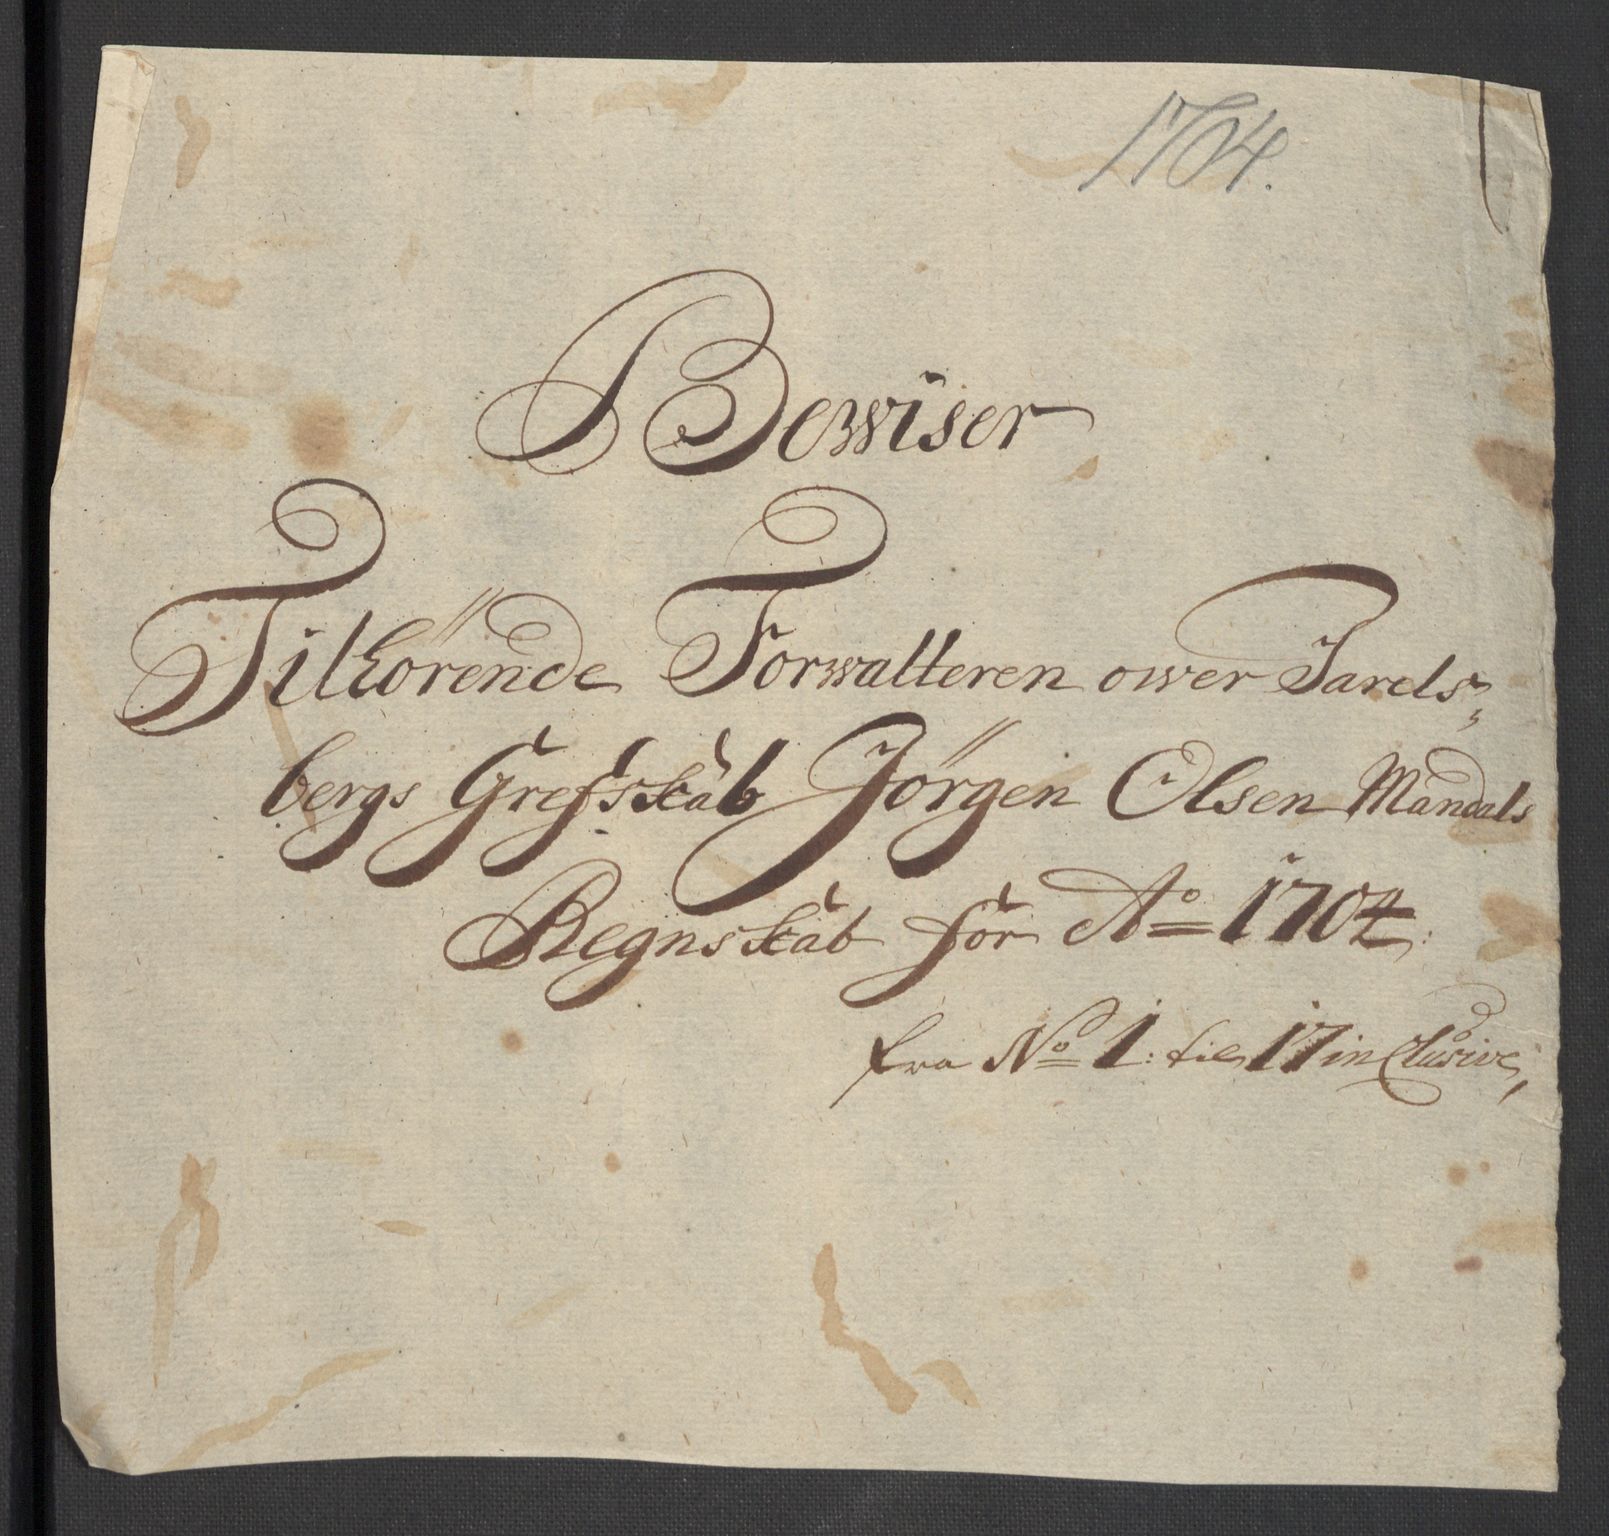 1704.
Bewiser
Tilhörende Forwalteren ower Jarels,
bergs Grefsskab Jörgen Olsen Mandals
Regnsskab for Ao 1704:
fra No 1: til 17 inclusive,